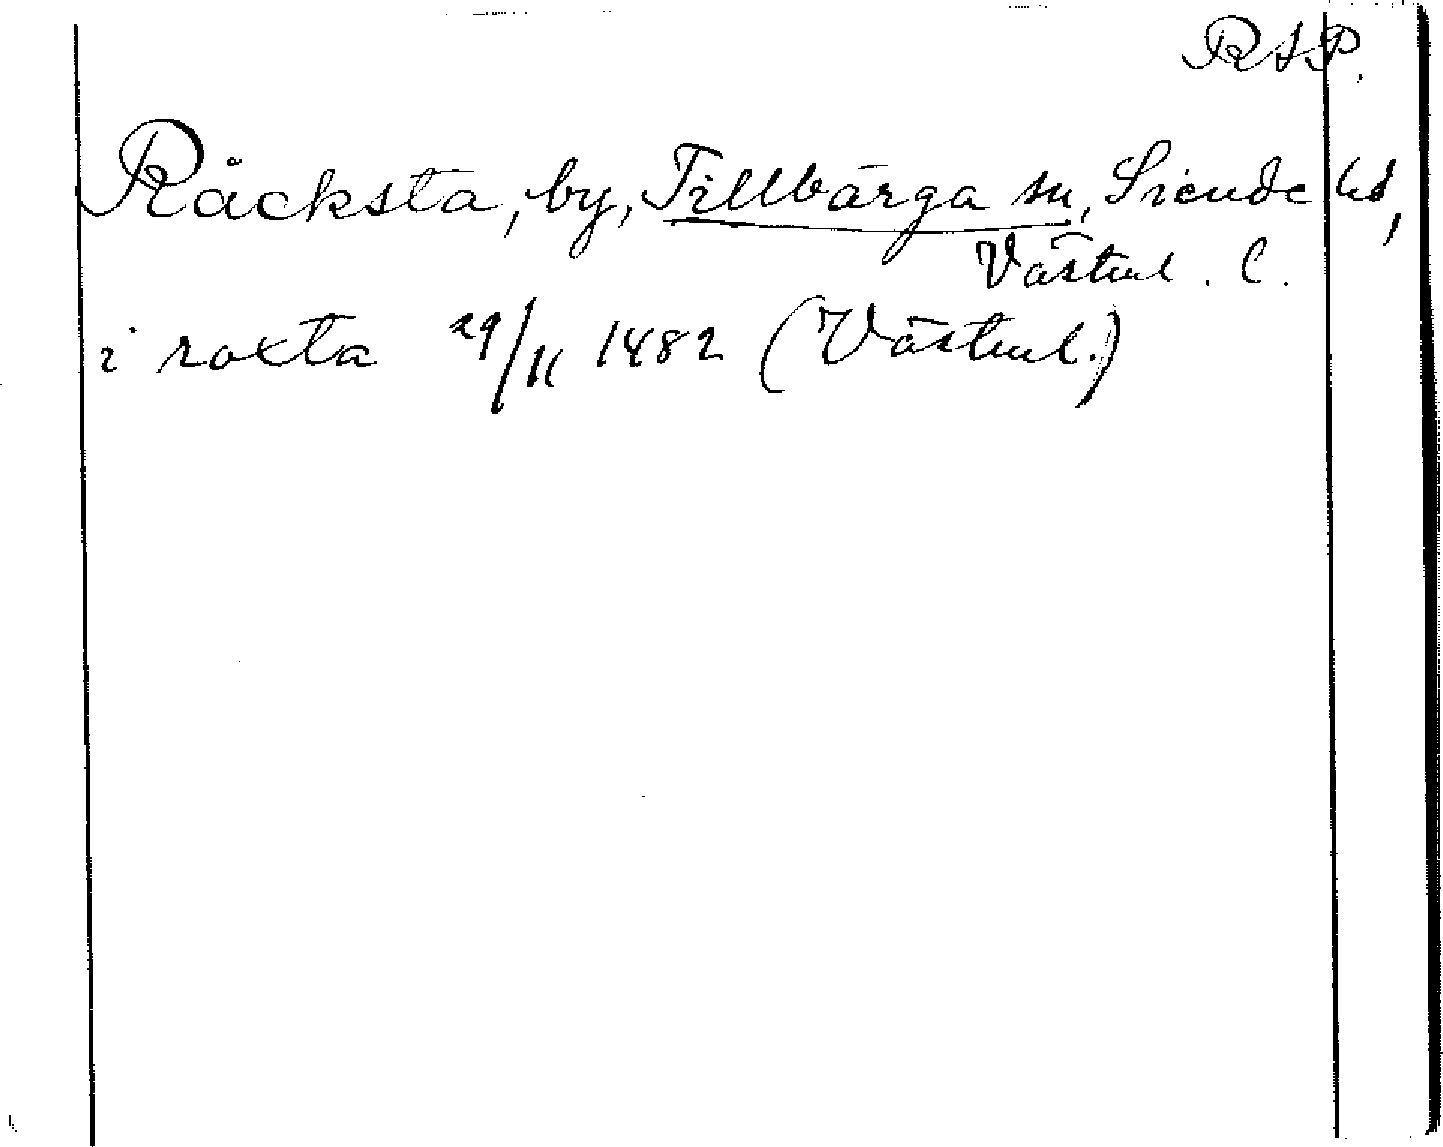 RAP.
Råcksta, by, Tillbärga sn, Siende hd,
Västml. l.
i roxta 29/11 1482 (Västml.)